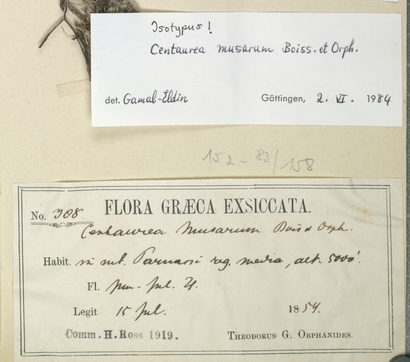 Isotypus!
Centaurea musarum Boiss. et Orph.
det. Gamal-Eldin Göttingen, 2. VI. 1984
152-83/158
FLORA GRÆCA EXSICCATA.
No. 308
Centaurea Musarum Boiss et Orph.
Habit. in mt. Parnassi reg. media, alt. 5000'.
Fl. jun-jul. ♃
Legit 15 jul. 1854.
Comm. H. Ross 1919. THEODORUS G. ORPHANIDES.